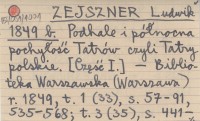 ZEJSZNER Ludwik
1849 b. Podhale i północna
pochyłość Tatrów czyli Tatry
polskie. [Część I.] — Biblio-
teka Warszawska (Warszawa)
r. 1849, t. 1 (33), s. 57-91,
535-568; t. 3 (35), s. 441-